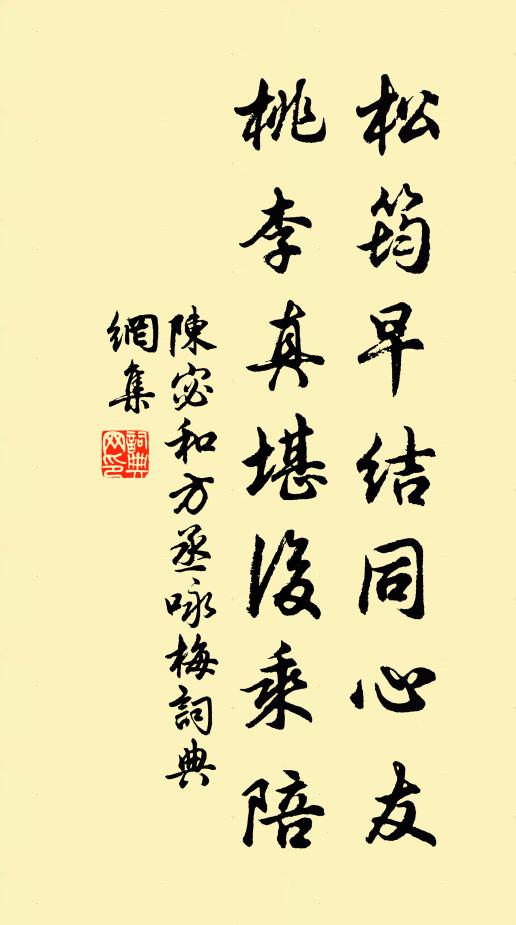 松筠早結同心友
桃李真堪後乘陪
陳宓和方丞咏梅詞典
網集
詞典
网印